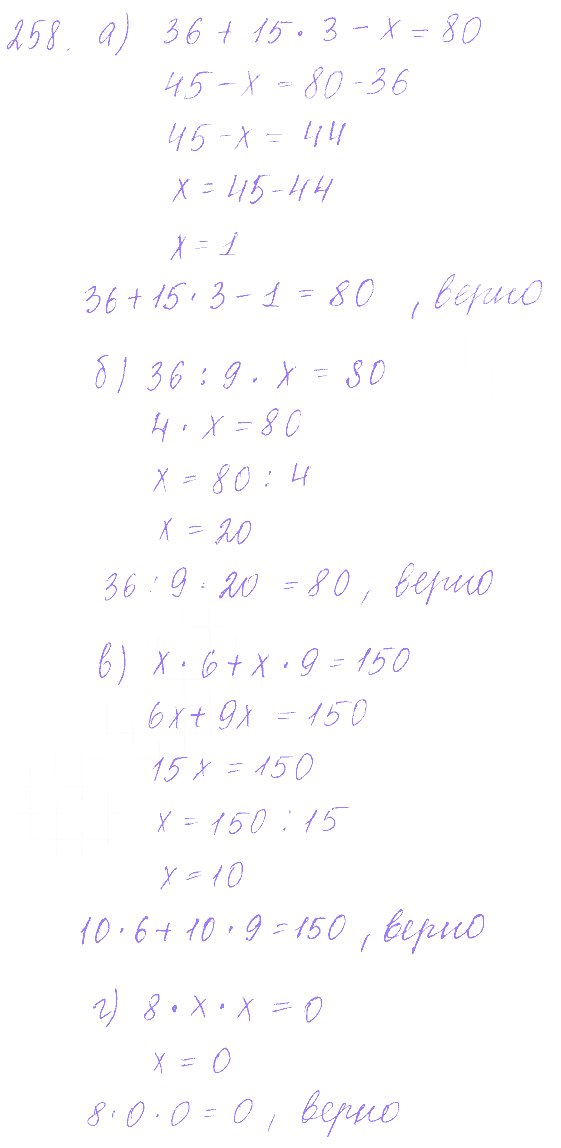 258. а) 36 + 15 · 3 - x = 80
45 - x = 80 - 36
45 - x = 44
x = 45 - 44
x = 1
36 + 15 · 3 - 1 = 80 , верно
б) 36 : 9 · x = 80
4 · x = 80
x = 80 : 4
x = 20
36 : 9 · 20 = 80 , верно
в) x · 6 + x · 9 = 150
6x + 9x = 150
15x = 150
x = 150 : 15
x = 10
10 · 6 + 10 · 9 = 150 , верно
г) 8 · x · x = 0
x = 0
8 · 0 · 0 = 0 , верно